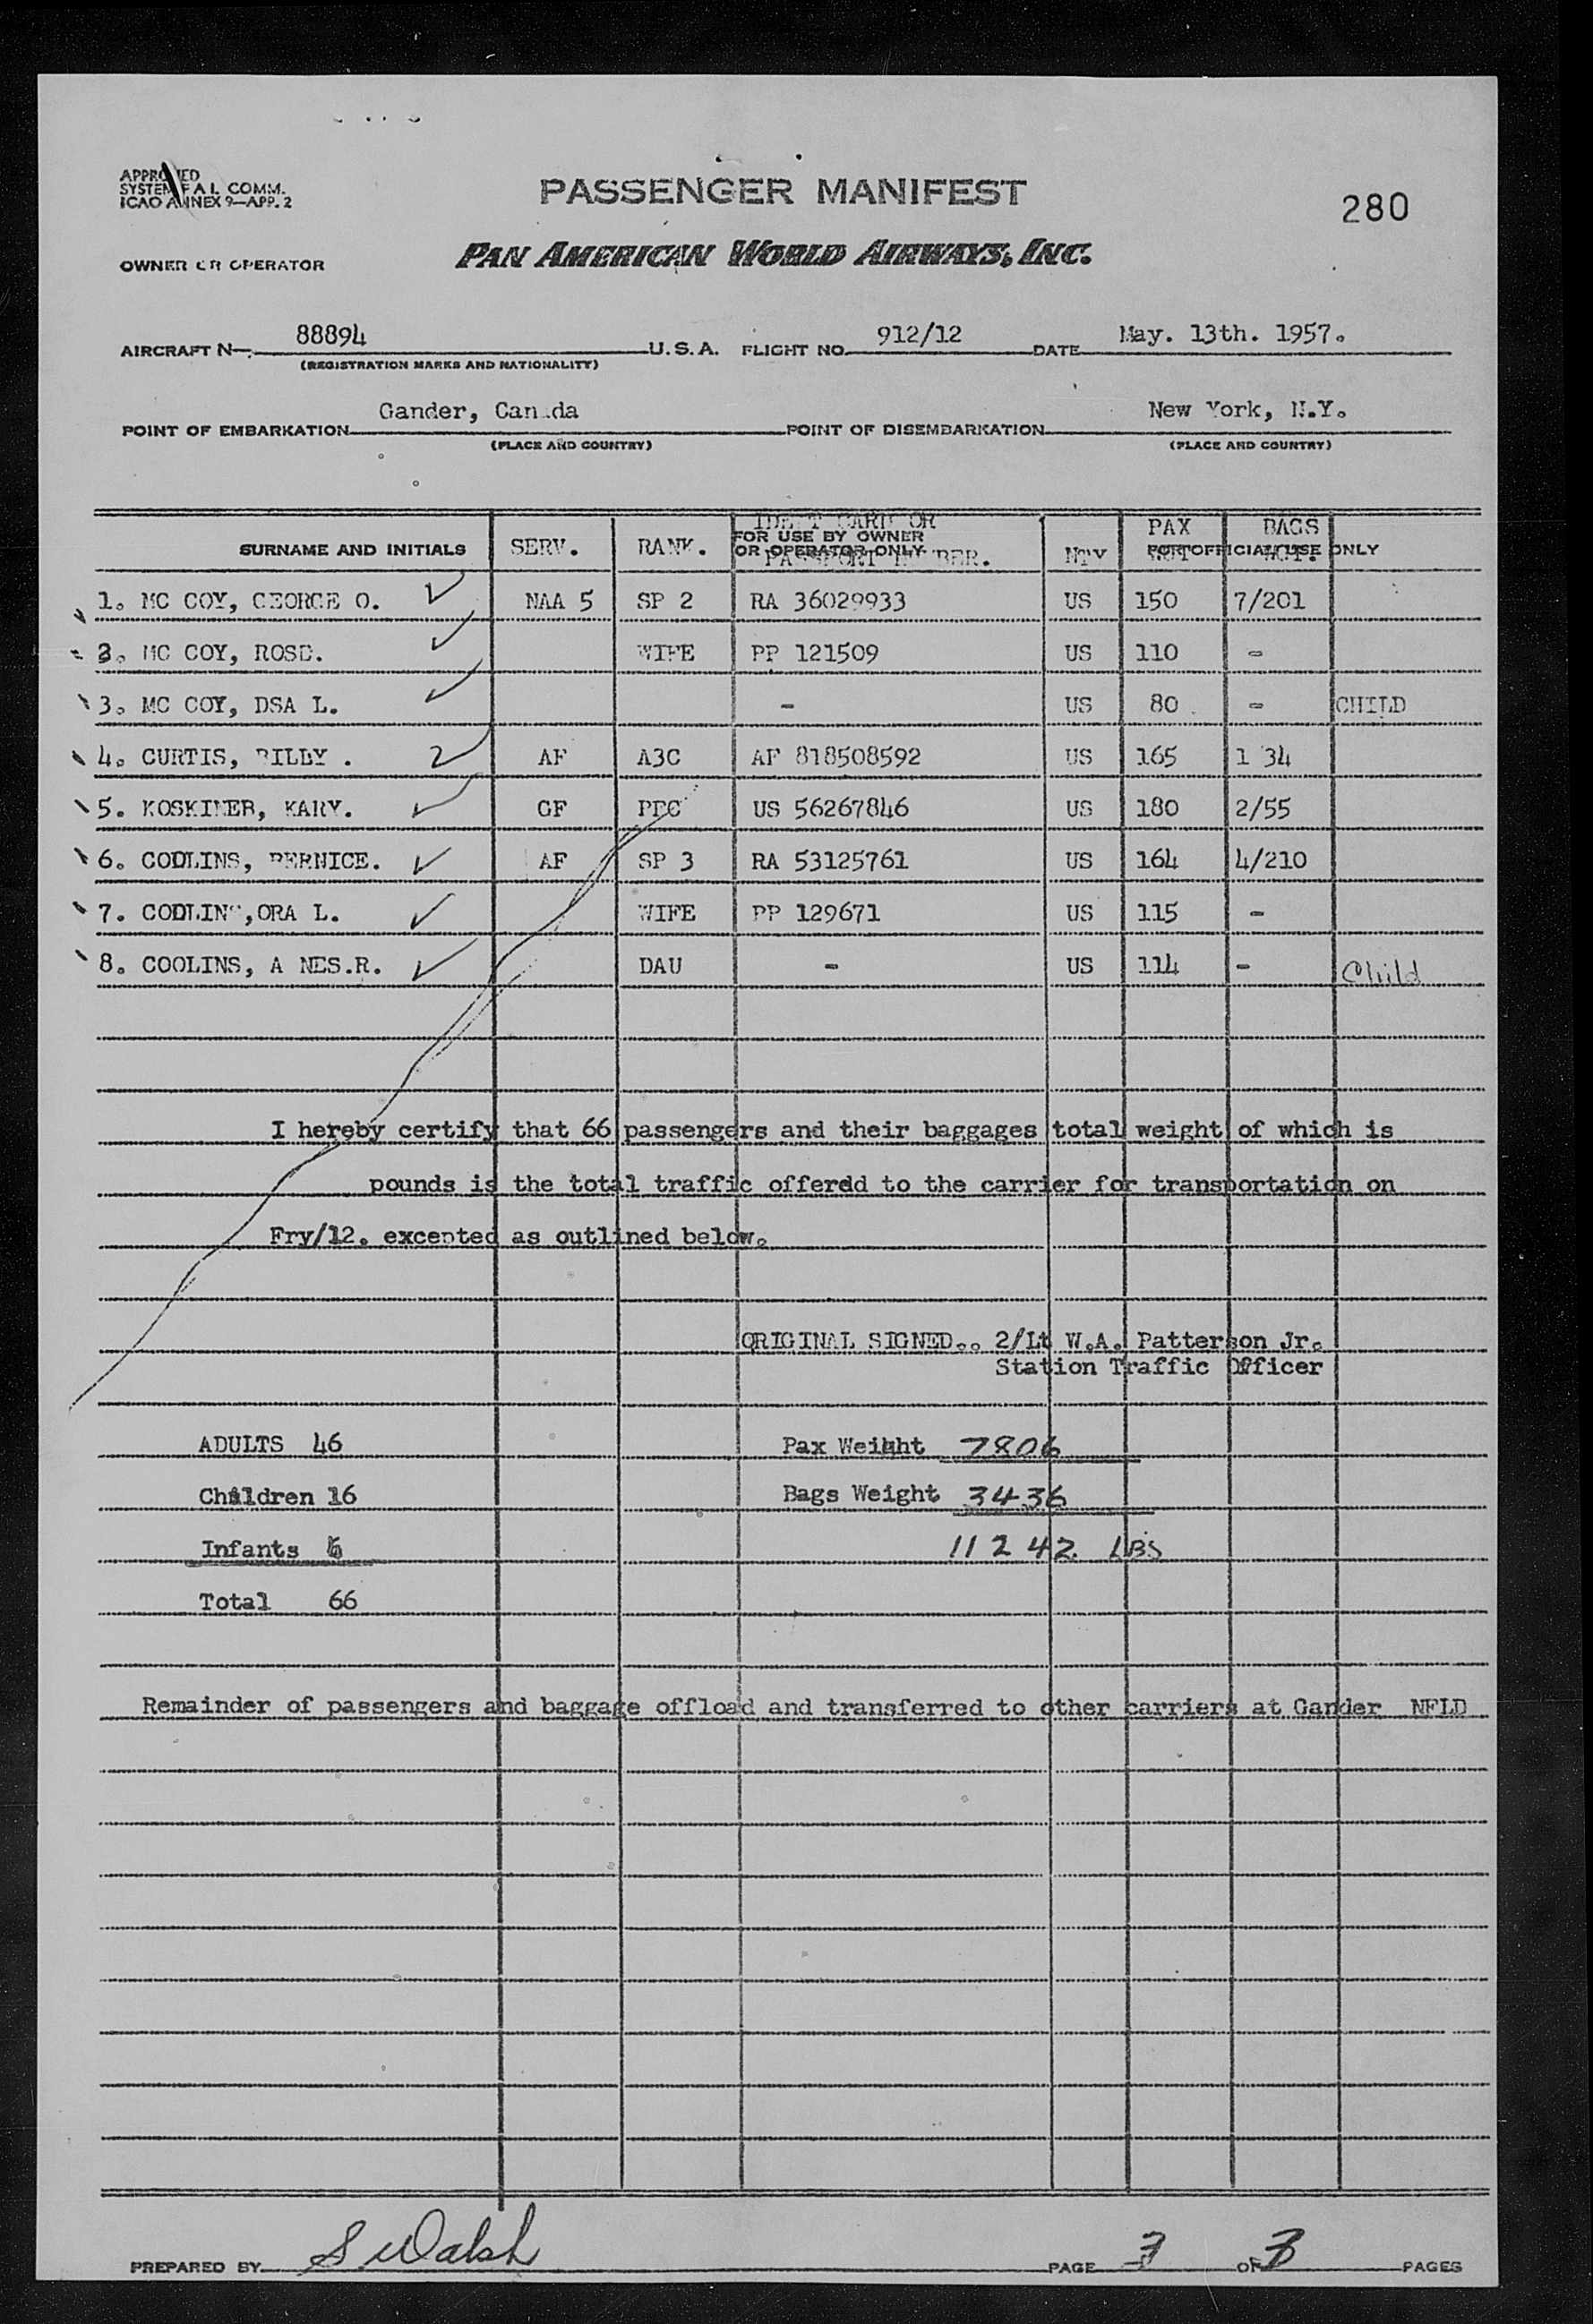 APPROVED
SYSTEM F A L COMM.
ICAO ANNEX 9—APP. 2
PASSENGER MANIFEST
280
OWNER OR OPERATOR
PAN AMERICAN WORLD AIRWAYS, INC.
AIRCRAFT N— 88894 U. S. A. FLIGHT NO. 912/12 DATE May. 13th. 1957.
(REGISTRATION MARKS AND NATIONALITY)
POINT OF EMBARKATION Gander, Canada POINT OF DISEMBARKATION New York, N.Y.
(PLACE AND COUNTRY) (PLACE AND COUNTRY)
IDENT CARD OR PAX BAGS
FOR USE BY OWNER
SURNAME AND INITIALS SERV. RANK. OR OPERATOR ONLY NTY FOR OFFICIAL USE ONLY
PASSPORT NUMBER. WGT WGT.
1. MC COY, GEORGE O. NAA 5 SP 2 RA 36029933 US 150 7/201
2. MC COY, ROSE. WIFE PP 121509 US 110 -
3. MC COY, DSA L. - US 80 - CHILD
4. CURTIS, BILLY . 2 AF A3C AF 818508592 US 165 1 34
5. KOSKINEB, KARY. GF PFC US 56267846 US 180 2/55
6. CODLINS, BERNICE. AF SP 3 RA 53125761 US 164 4/210
7. CODLINS,ORA L. WIFE PP 129671 US 115 -
8. COOLINS, A NES.R. DAU - US 114 - Child
I hereby certify that 66 passengers and their baggages total weight of which is
pounds is the total traffic offerdd to the carrier for transportation on
Fry/12. excepted as outlined below.
ORIGINAL SIGNED.. 2/Lt W.A. Patterson Jr.
Station Traffic Officer
ADULTS 46 Pax Weihht 7806
Children 16 Bags Weight 3436
Infants 11242 LBS
Total 66
Remainder of passengers and baggage offload and transferred to other carriers at Gander NFLD
PREPARED BY S Walsh PAGE 3 OF 3 PAGES